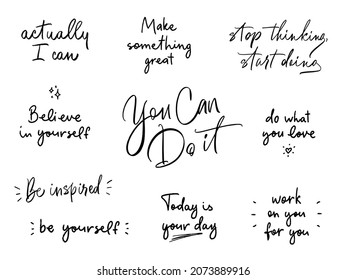 actually
I can
Make
something
great
stop thinking,
start doing
Believe
in yourself
You Can
Do it
do what
you love
Be inspired
be yourself
Today is
your day
work
on you
for you
shutterstock.com · 2073889916